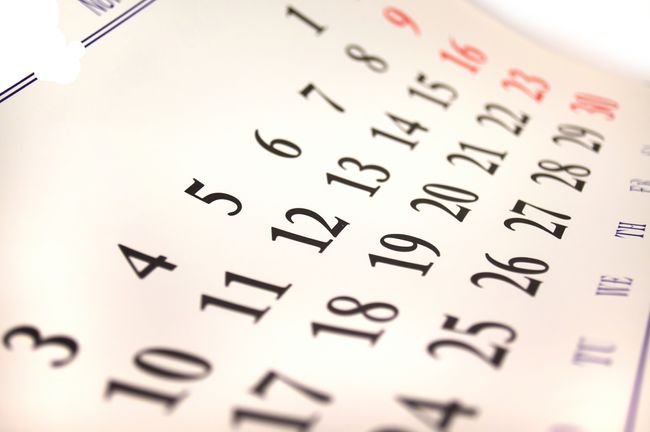 9 16 23 30
1 8 15 22 29
7 14 21 28 FR
6 13 20 27 TH
5 12 19 26 WE
4 11 18 25 TU
3 10 17 24